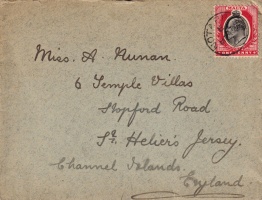 MALTA
Miss. A Nunan.
6 Temple Villas
Stopford Road
St. Helier's Jersey.
Channel Islands.
England.